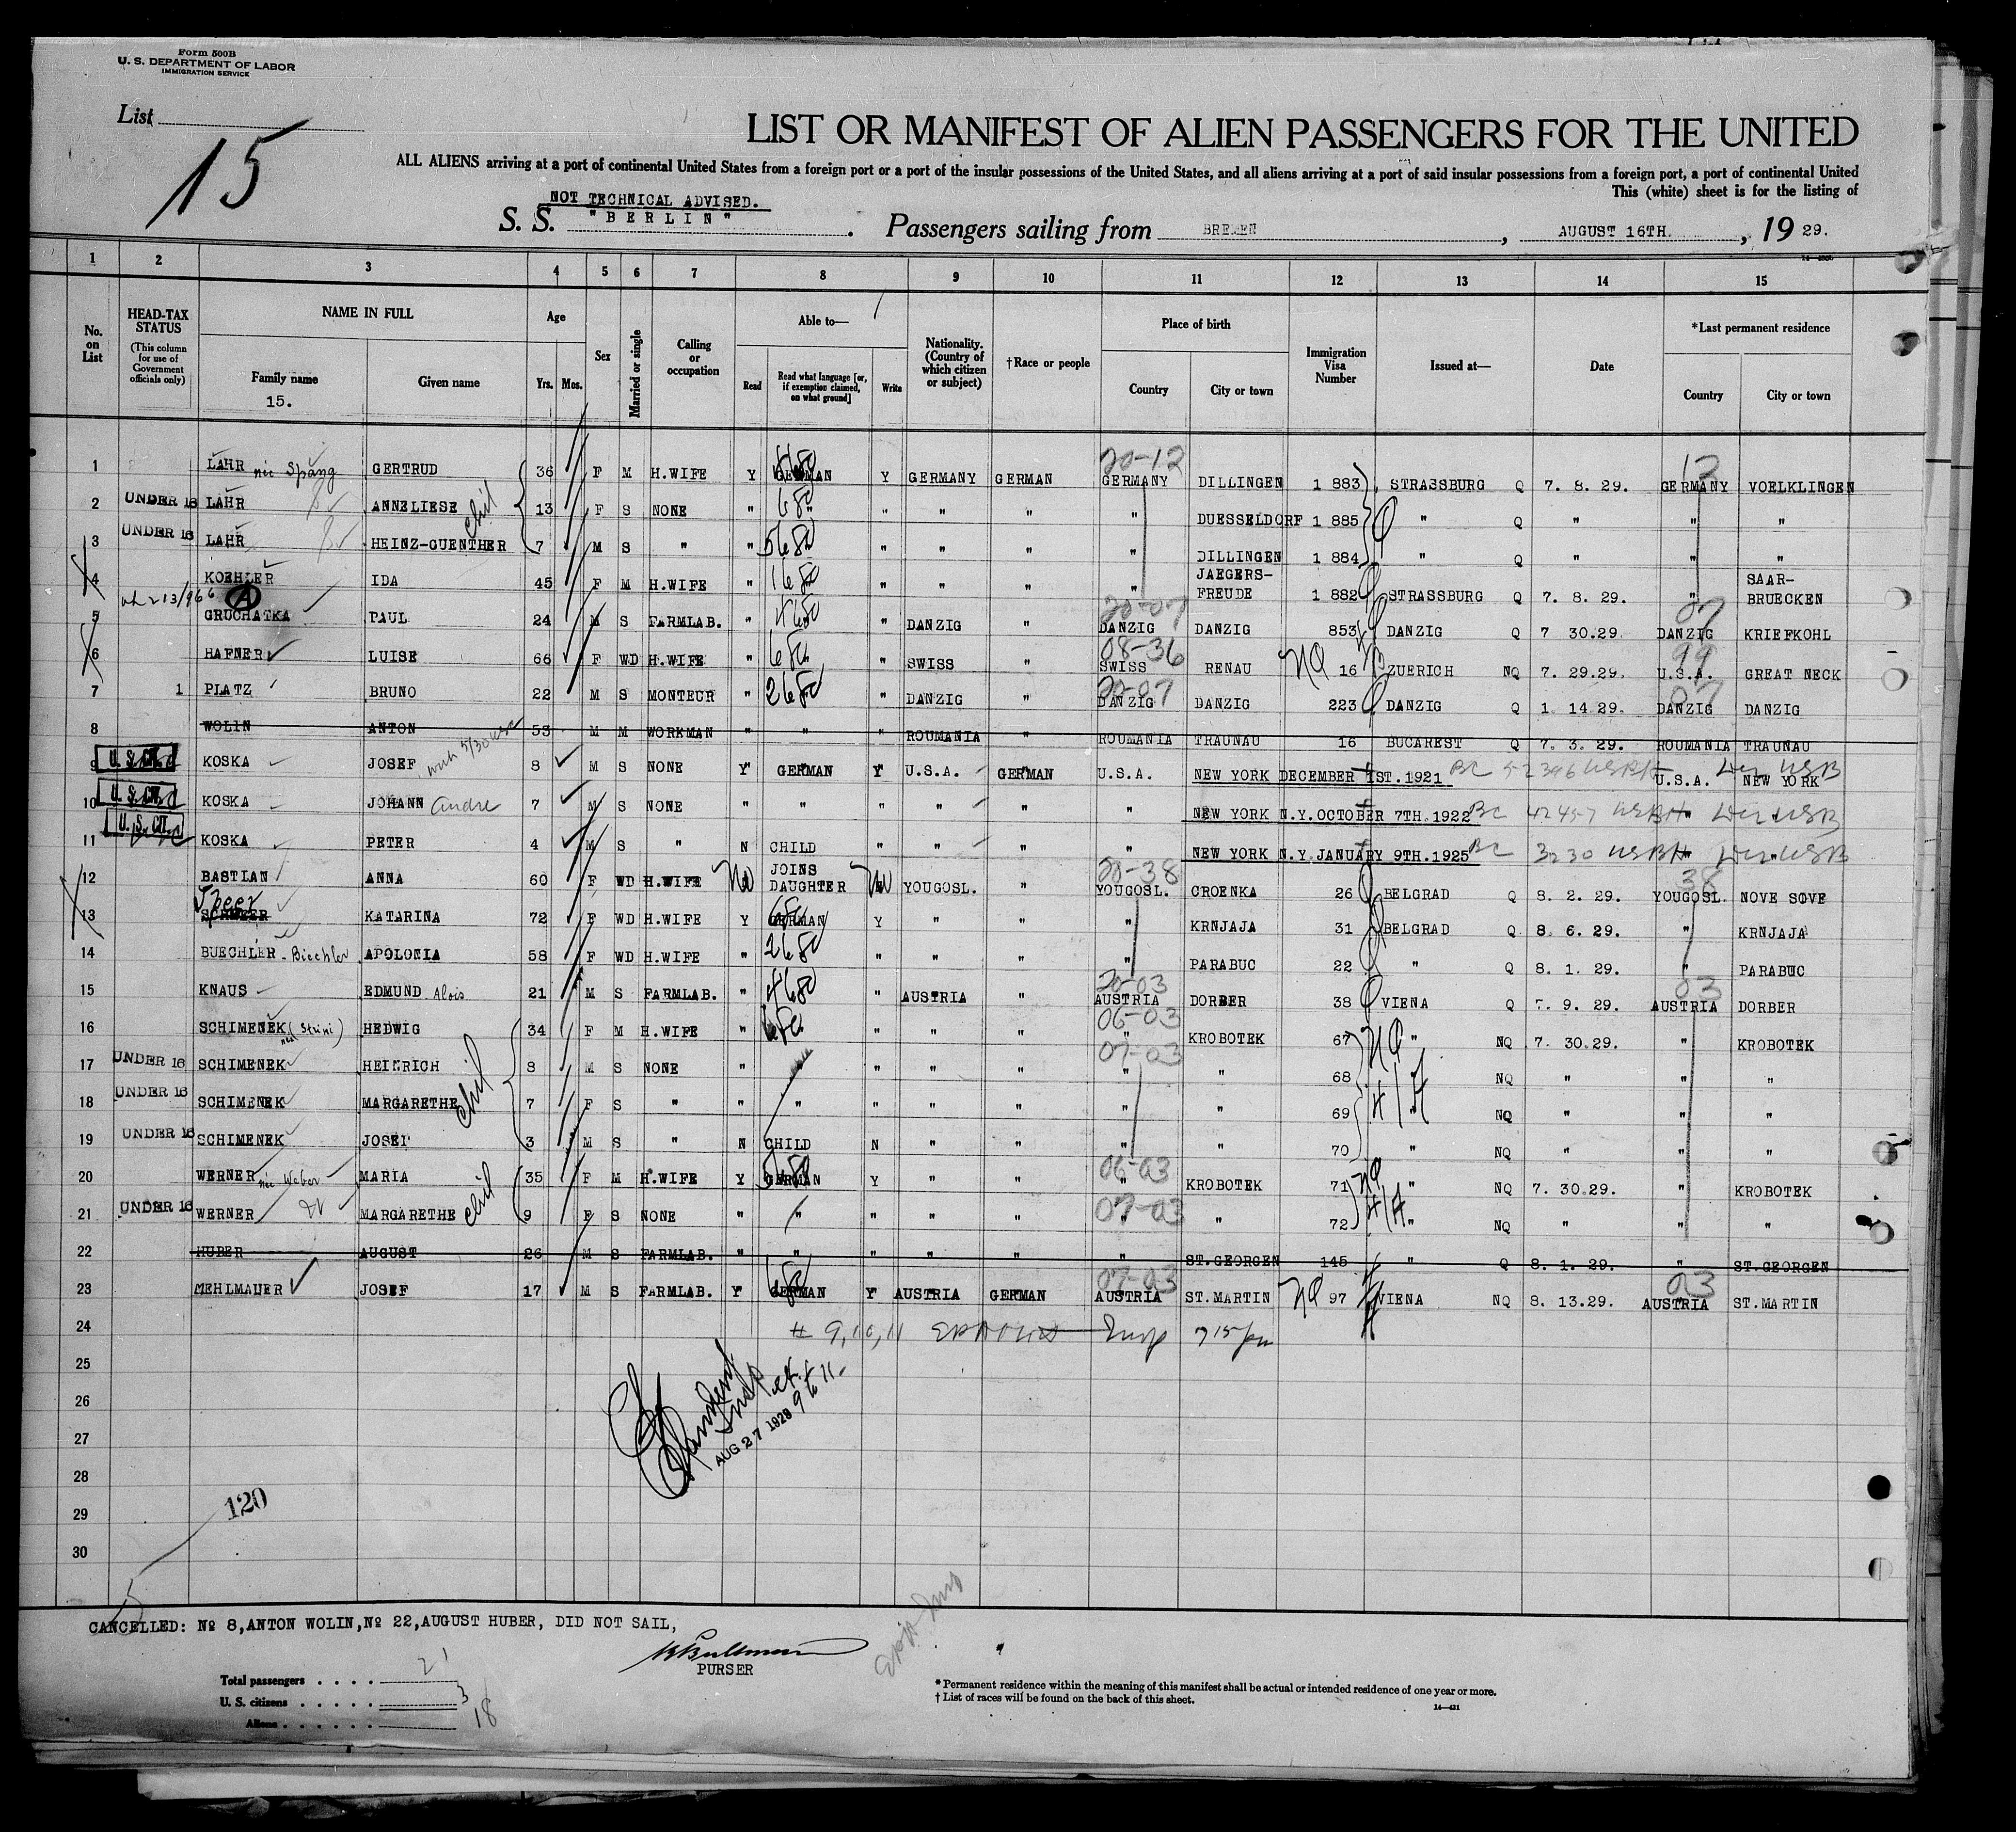 Form 500B
U. S. DEPARTMENT OF LABOR
IMMIGRATION SERVICE
List
15
LIST OR MANIFEST OF ALIEN PASSENGERS FOR THE UNITED
ALL ALIENS arriving at a port of continental United States from a foreign port or a port of the insular possessions of the United States, and all aliens arriving at a port of said insular possessions from a foreign port, a port of continental United
This (white) sheet is for the listing of
NOT TECHNICAL ADVISED.
S. S. "BERLIN". Passengers sailing from BREMEN, AUGUST 16TH., 19 29.
1 2 3 4 5 6 7 8 9 10 11 12 13 14 15
No. on List
HEAD-TAX STATUS (This column for use of Government officials only)
NAME IN FULL
Family name
15.
Given name
Age
Yrs. Mos.
Sex
Married or single
Calling or occupation
Able to—
Read
Read what language [or, if exemption claimed, on what ground]
Write
Nationality. (Country of which citizen or subject)
†Race or people
Place of birth
Country
City or town
Immigration Visa Number
Issued at—
Date
*Last permanent residence
Country
City or town
1 LAHR née Spang GERTRUD 36 F M H.WIFE Y GERMAN Y GERMANY GERMAN 20-12 GERMANY DILLINGEN 1 883 STRASSBURG Q 7. 8. 29. 12 GERMANY VOELKLINGEN
2 UNDER 16 LAHR ANNELIESE 13 F S NONE " " " " " " DUESSELDORF 1 885 " Q " " "
3 UNDER 16 LAHR HEINZ-GUENTHER 7 M S " " " " " " DILLINGEN 1 884 " Q " " "
4 KOEHLER IDA 45 F M H.WIFE " " " " " JAEGERS-FREUDE 1 882 STRASSBURG Q 7. 8. 29. " SAAR-BRUECKEN
A
5 GRUCHATKA PAUL 24 M S FARMLAB. " " DANZIG " 20-07 DANZIG DANZIG 853 DANZIG Q 7 30.29. 07 DANZIG KRIEFKOHL
6 HAFNER LUISE 66 F WD H.WIFE " " " SWISS " 08-36 SWISS RENAU NQ 16 ZUERICH NQ 7. 29.29. 99 U.S.A. GREAT NECK
7 1 PLATZ BRUNO 22 M S MONTEUR " " DANZIG " 20-07 DANZIG DANZIG 223 DANZIG Q 1. 14.29. 07 DANZIG DANZIG
8 WOLIN ANTON 53 M M WORKMAN " " " ROUMANIA " ROUMANIA TRAUNAU 16 BUCAREST Q 7. 3. 29. ROUMANIA TRAUNAU
9 U. S. CIT. KOSKA JOSEF 8 M S NONE Y GERMAN Y U.S.A. GERMAN U.S.A. NEW YORK DECEMBER 1ST.1921 BC 52396 U.S.A. NEW YORK
10 U. S. CIT. KOSKA JOHANN Andre 7 M S NONE " " " " " " NEW YORK N.Y.OCTOBER 7TH.1922 BC 42457
11 U. S. CIT. KOSKA PETER 4 M S " N CHILD " " " " NEW YORK N.Y.JANUARY 9TH.1925 BC 3230
12 BASTIAN ANNA 60 F WD H.WIFE No JOINS DAUGHTER No YOUGOSL. " 20-38 YOUGOSL. CROENKA 26 BELGRAD Q 8. 2. 29. 38 YOUGOSL. NOVE SOVE
Speer
13 KATARINA 72 F WD H.WIFE Y GERMAN Y " " " KRNJAJA 31 BELGRAD Q 8. 6. 29. " KRNJAJA
14 BUECHLER - Biechler APOLONIA 58 F WD H.WIFE " " " " " PARABUC 22 " Q 8. 1. 29. " PARABUC
15 KNAUS EDMUND Alois 21 M S FARMLAB. " " AUSTRIA " 20-03 AUSTRIA DORBER 38 VIENA Q 7. 9. 29. 03 AUSTRIA DORBER
16 SCHIMENEK HEDWIG 34 F M H.WIFE " " " " 06-03 " KROBOTEK 67 NQ " NQ 7. 30.29. " KROBOTEK
17 UNDER 16 SCHIMENEK HEINRICH 8 M S NONE " " " " " 07-03 " " 68 NQ " " "
18 UNDER 16 SCHIMENEK MARGARETHE 7 F S " " " " " " " " 69 " NQ " " "
19 UNDER 16 SCHIMENEK JOSEF 3 M S " N CHILD N " " " " 70 " NQ " " "
20 WERNER née Weber MARIA 35 F M H.WIFE Y GERMAN Y " " 06-03 " KROBOTEK 71 NQ " NQ 7. 30.29. " KROBOTEK
21 UNDER 16 WERNER MARGARETHE 9 F S NONE " " " " " 07-03 " 72 " NQ " " "
22 HUBER AUGUST 26 M S FARMLAB. " " " " " " ST.GEORGEN 145 " Q 8. 1. 29. " ST.GEORGEN
23 MEHLMAUER JOSEF 17 M S FARMLAB. Y GERMAN Y AUSTRIA GERMAN 07-03 AUSTRIA ST.MARTIN NQ 97 VIENA NQ 8. 13.29. 03 AUSTRIA ST.MARTIN
24 # 9,10,11
25
26
AUG 27 1929 9 to 11
27
28
29
120
30
CANCELLED: № 8,ANTON WOLIN,№ 22,AUGUST HUBER, DID NOT SAIL,
PURSER
Total passengers . . . . 21
U. S. citizens . . . . . 3
Aliens . . . . . . 18
* Permanent residence within the meaning of this manifest shall be actual or intended residence of one year or more.
† List of races will be found on the back of this sheet.
14—431